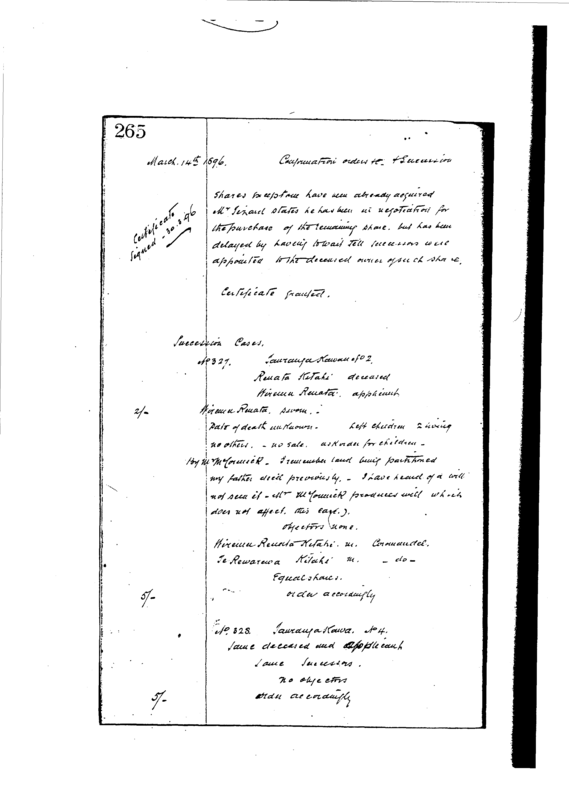 265
March. 14th 1896. Confirmation orders &c. & Succession
Shares except one have been already acquired
Mr states he has been in negotiation for
the purchase of the remaining share. but has been
delayed by having to wait till successors were
appointed to the deceased owner of such share.
Certificate
signed - 30.3.96
Certificate granted.
Succession Cases.
No 327. Tauranga Kawau No 2.
Renata Kitahi deceased
Wiremu Renata. applicant
2/- Wiremu Renata. sworn.:
Date of death unknown. Left children 2 living
no others. - no sale. ask order for children -
By Mr McCormick - I remember land being partitioned
my father died previously. - I have heard of a will
not seen it - Mr McCormick produces will which
does not affect this case.).
objectors none.
Wiremu Renata Kitahi. m. Coromandel.
Te Rewarewa Kitahi m. - do -
Equal shares.
5/- order accordingly
No 328. Tauranga Kawau. No 4.
Same deceased and applicant
Same Successors.
no objectors
5/- order accordingly